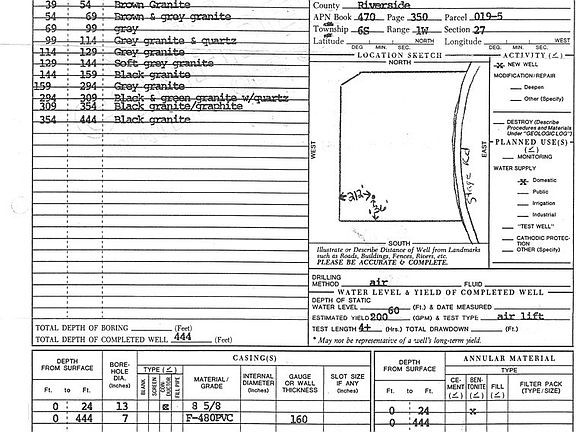 39 54 Brown Granite
54 69 Brown & grey granite
69 99 grey
99 114 Grey granite & quartz
114 129 Grey granite
129 144 Soft grey granite
144 159 Black granite
159 294 Grey granite
294 309 Black & green granite w/quartz
309 354 Black granite/graphite
354 444 Black granite
TOTAL DEPTH OF BORING (Feet)
TOTAL DEPTH OF COMPLETED WELL 444 (Feet)
County Riverside
APN Book 470 Page 350 Parcel 019-5
Township 6S Range 1W Section 27
Latitude NORTH Longitude WEST
DEG. MIN. SEC. DEG. MIN. SEC.
LOCATION SKETCH
NORTH
WEST
EAST
Stage Rd
212'
SOUTH
Illustrate or Describe Distance of Well from Landmarks
such as Roads, Buildings, Fences, Rivers, etc.
PLEASE BE ACCURATE & COMPLETE.
ACTIVITY (∠)
x NEW WELL
MODIFICATION/REPAIR
Deepen
Other (Specify)
DESTROY (Describe
Procedures and Materials
Under "GEOLOGIC LOG")
PLANNED USE(S)
(∠)
MONITORING
WATER SUPPLY
x Domestic
Public
Irrigation
Industrial
"TEST WELL"
CATHODIC PROTEC-
TION
OTHER (Specify)
DRILLING
METHOD air FLUID
WATER LEVEL & YIELD OF COMPLETED WELL
DEPTH OF STATIC
WATER LEVEL 60 (Ft.) & DATE MEASURED
ESTIMATED YIELD* 200 (GPM) & TEST TYPE air lift
TEST LENGTH 4+ (Hrs.) TOTAL DRAWDOWN (Ft.)
* May not be representative of a well's long-term yield.
DEPTH
FROM SURFACE
Ft. to Ft.
BORE-
HOLE
DIA.
(Inches)
CASING(S)
TYPE (∠)
BLANK
SCREEN
CON-
DUCTOR
FILL PIPE
MATERIAL/
GRADE
INTERNAL
DIAMETER
(Inches)
GAUGE
OR WALL
THICKNESS
SLOT SIZE
IF ANY
(Inches)
0 24 13 x 8 5/8
0 444 7 F-480PVC 160
DEPTH
FROM SURFACE
Ft. to Ft.
ANNULAR MATERIAL
TYPE
CE-
MENT
(∠)
BEN-
TONITE
(∠)
FILL
(∠)
FILTER PACK
(TYPE/SIZE)
0 24 x
0 444